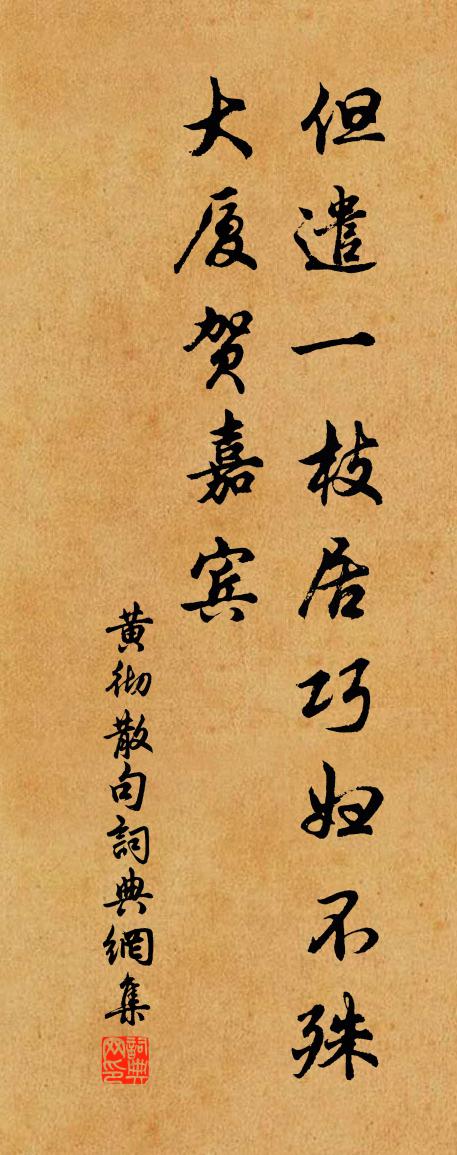 但遣一枝居巧妇不殊
大厦贺嘉宾
黄彻散句詞典網集
詞典网印